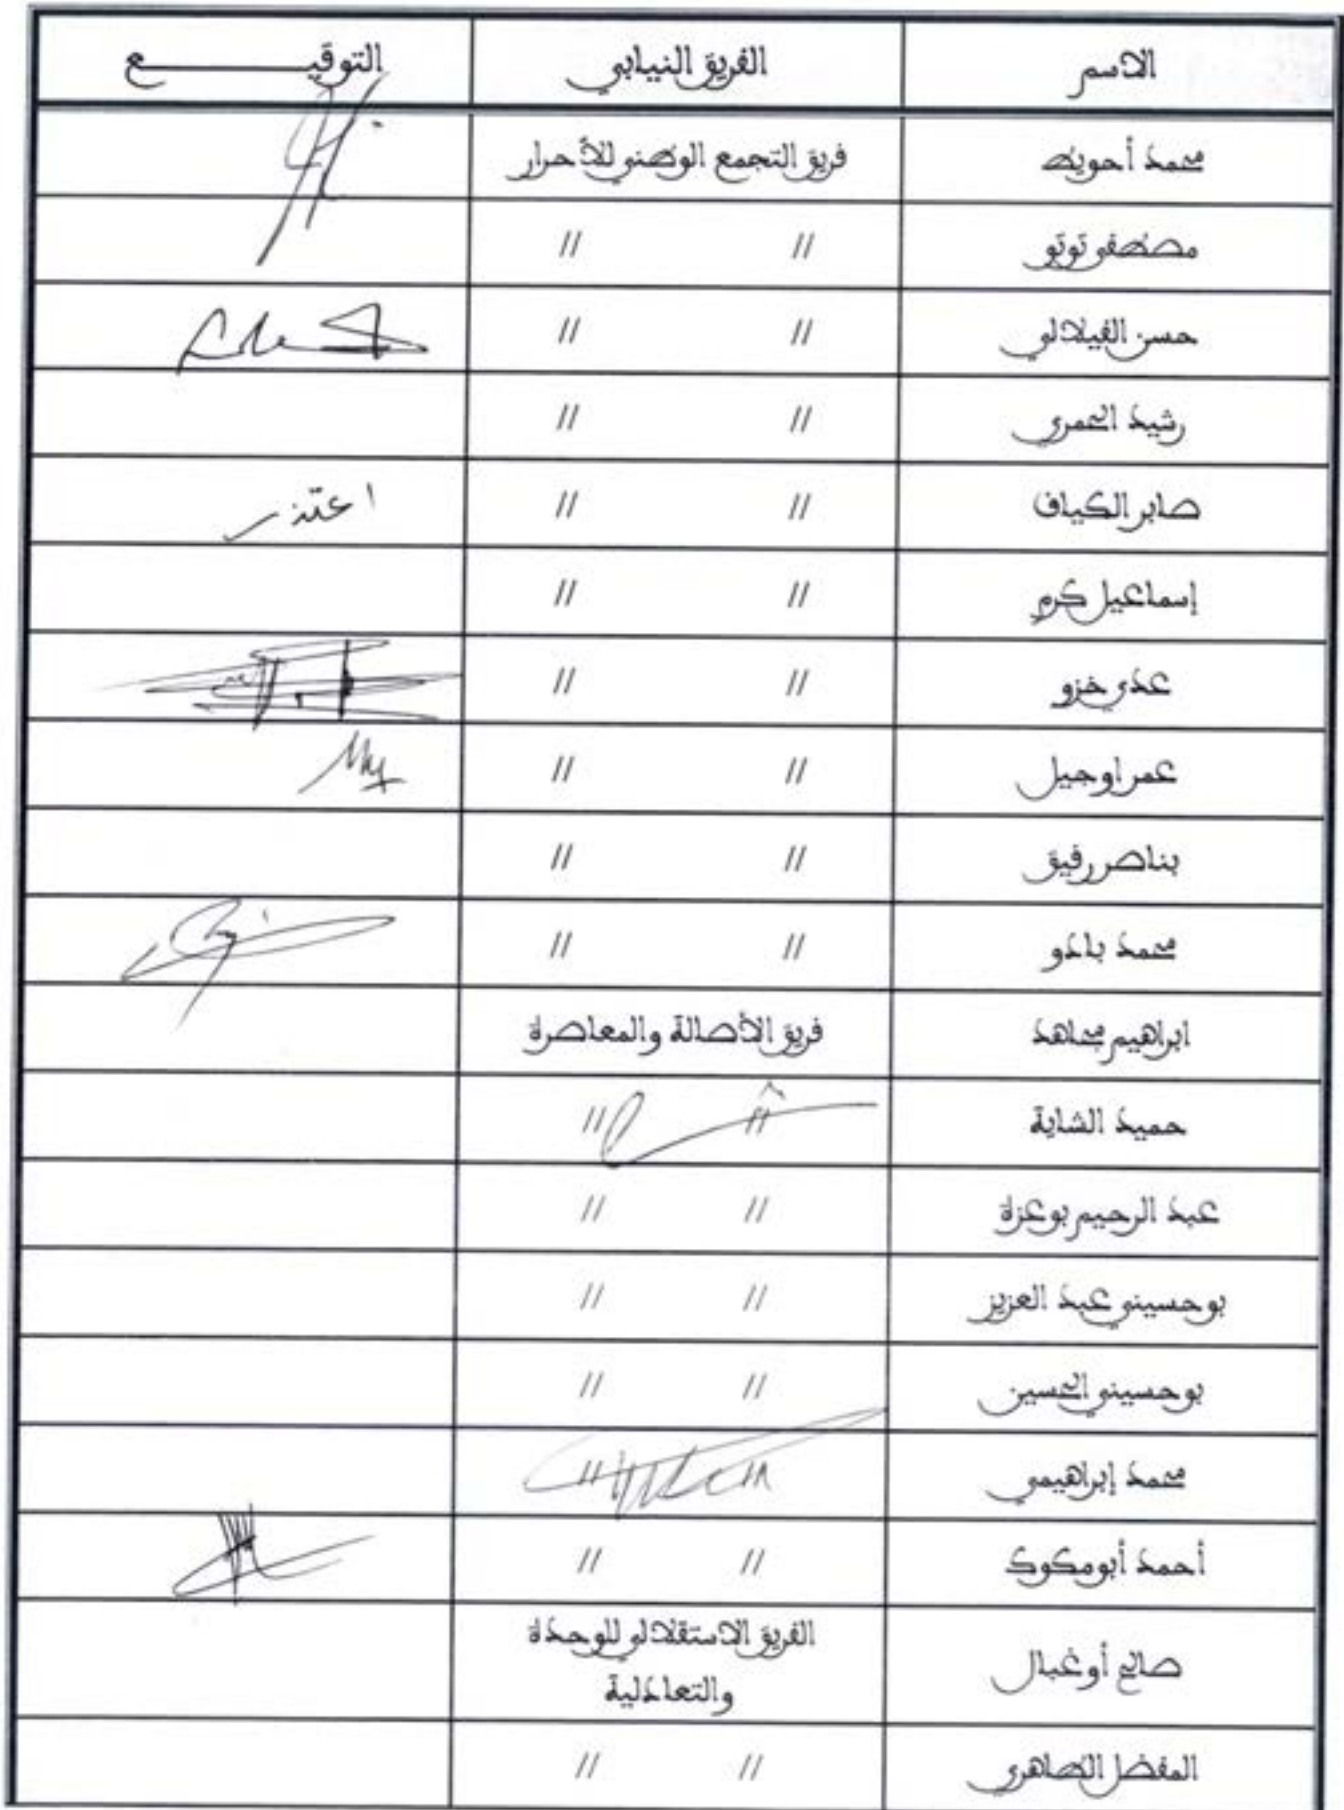 الاسم الفريق النيابي التوقيـــــــع
محمد أحويط فريق التجمع الوطني للأحرار
مصطفى توتو // //
حسن الفيلالي // //
رشيد الحمري // //
صابر الكياف // // اعتذر
إسماعيل كرم // //
عدي خزو // //
عمر اوجيل // //
بناصر رفيق // //
محمد بادو // //
ابراهيم مجاهد فريق الأصالة والمعاصرة
حميد الشاية // //
عبد الرحيم بوعزة // //
بوحسيني عبد العزيز // //
بوحسيني الحسين // //
محمد إبراهيمي // //
أحمد أبومكوك // //
صالح أوغبال الفريق الاستقلالي للوحدة
والتعادلية
المفضل الطاهري // //